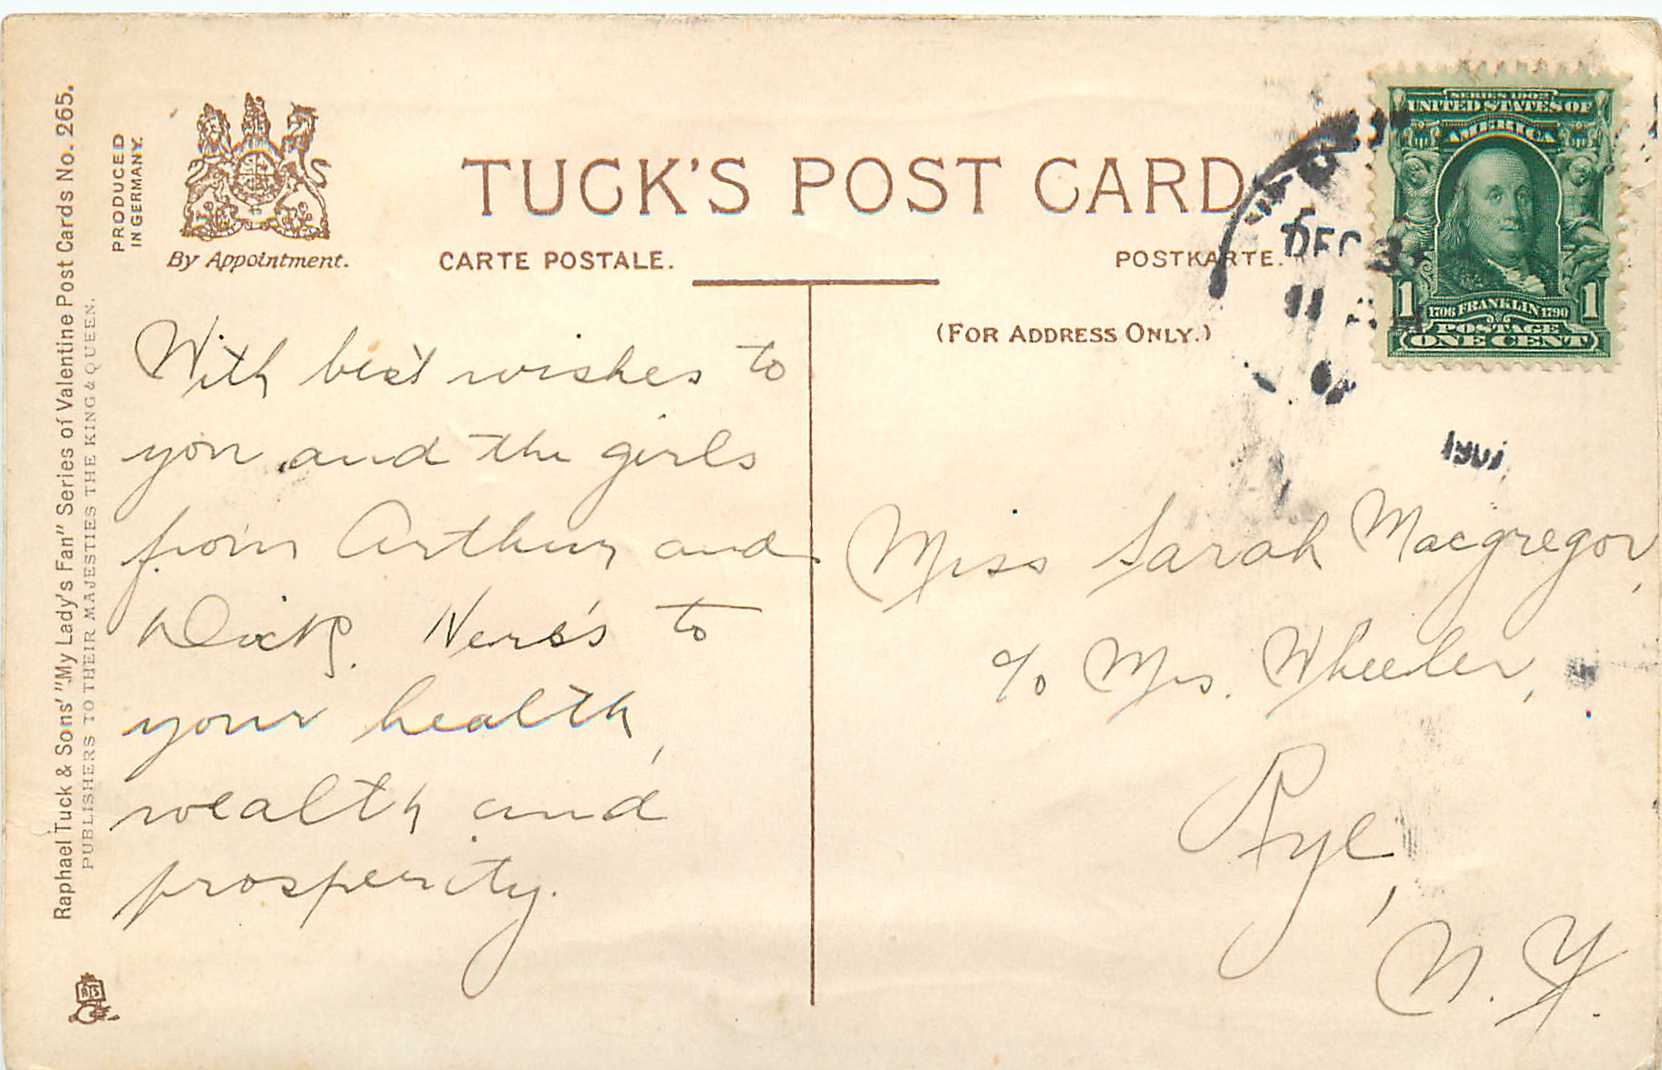 Raphael Tuck & Sons' "My Lady's Fan" Series of Valentine Post Cards No. 265.
PUBLISHERS TO THEIR MAJESTIES THE KING & QUEEN.
PRODUCED
IN GERMANY.
By Appointment.
TUCK'S POST CARD
CARTE POSTALE.
POSTKARTE.
(FOR ADDRESS ONLY.)
With best wishes to
you and the girls
from Arthur and
Dick. Here's to
your health,
wealth and
prosperity.
DEC 3
11
SERIES 1902
UNITED STATES OF
AMERICA
1 1
1706 FRANKLIN 1790
POSTAGE
ONE CENT
Miss Sarah Macgregor,
c/o Mrs. Wheeler,
Rye,
N. Y.